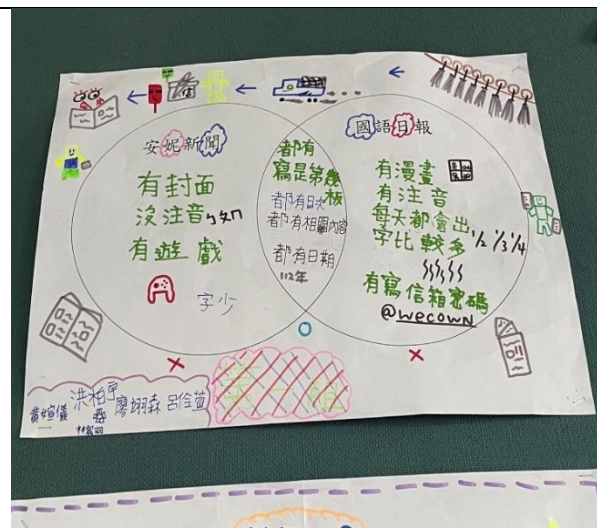 安妮新聞
有封面
沒注音ㄅㄆㄇ
有遊戲
字少
都有
寫是第幾板
都有目次
都有相關內容
都有日期
112年
國語日報
有漫畫
有注音
每天都會出 1/2 1/3 1/4
字比較多
有寫信箱密碼
@wecown
洪柏宇
廖翊森